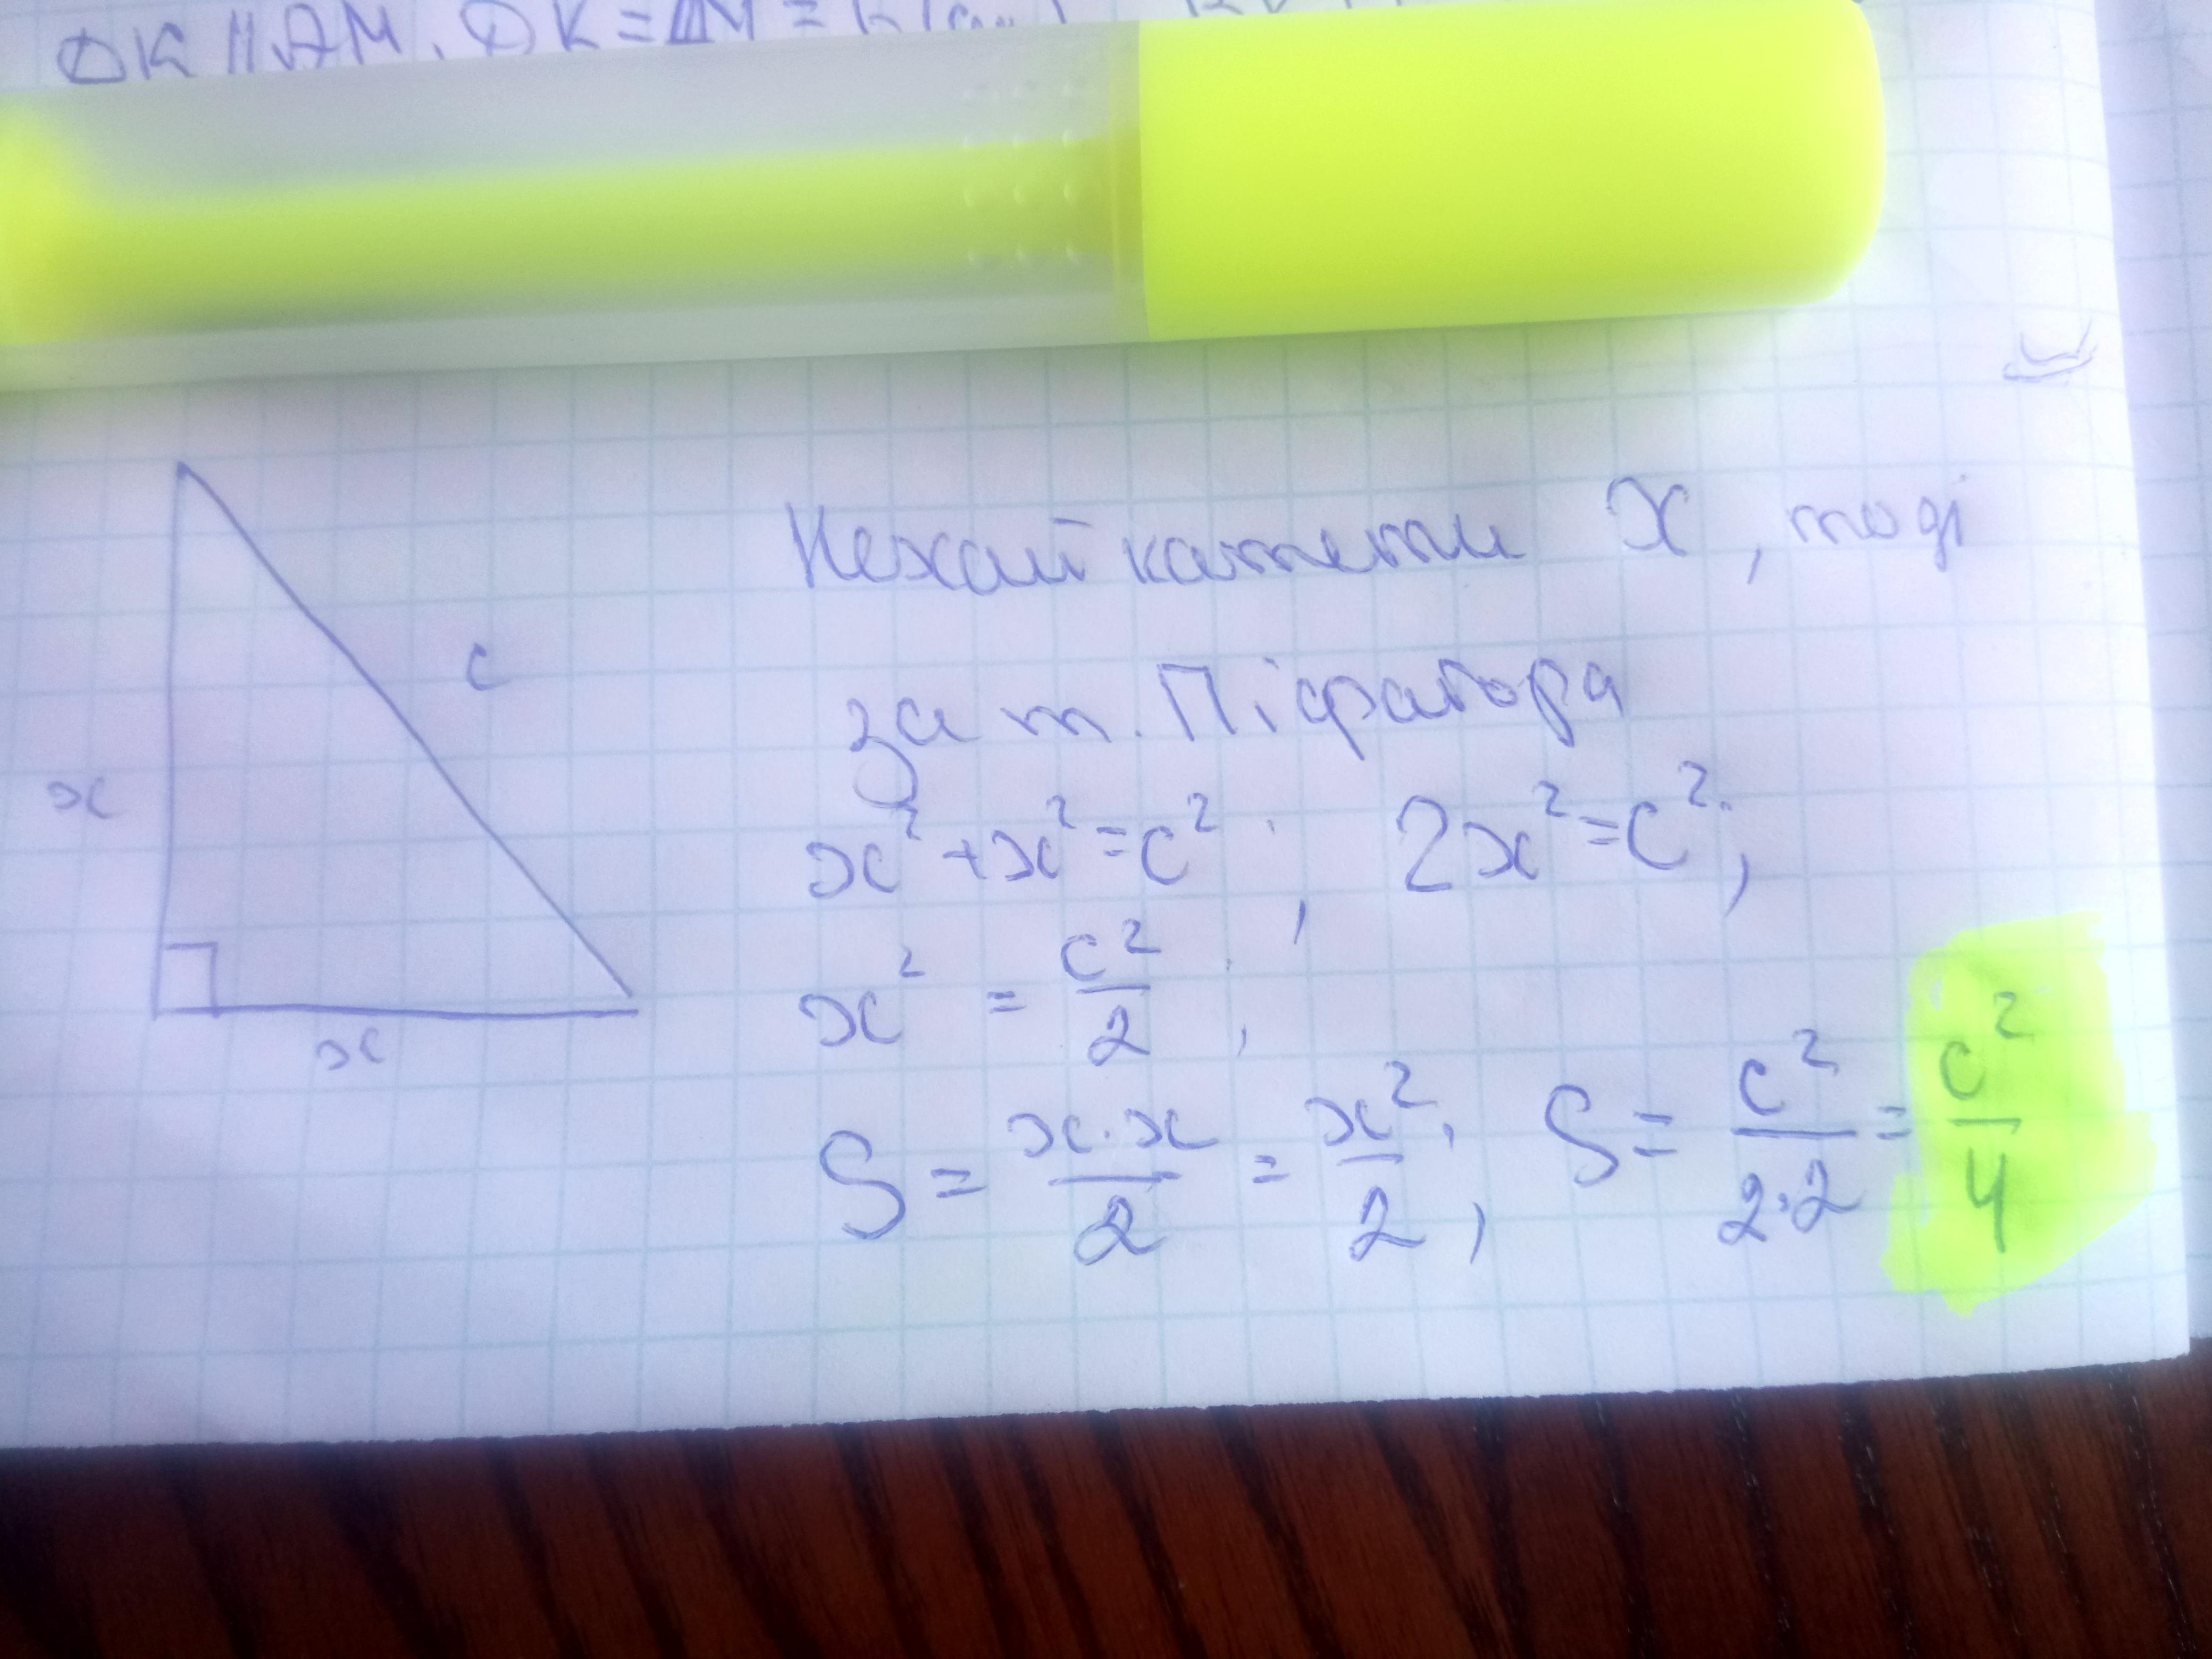 DK || AM. DK = AM = h
c
x
x
Нехай катети x, тоді
за т. Піфагора
x² + x² = c²; 2x² = c²;
x² = c²/2;
S = x·x/2 = x²/2; S = c²/2·2 = c²/4